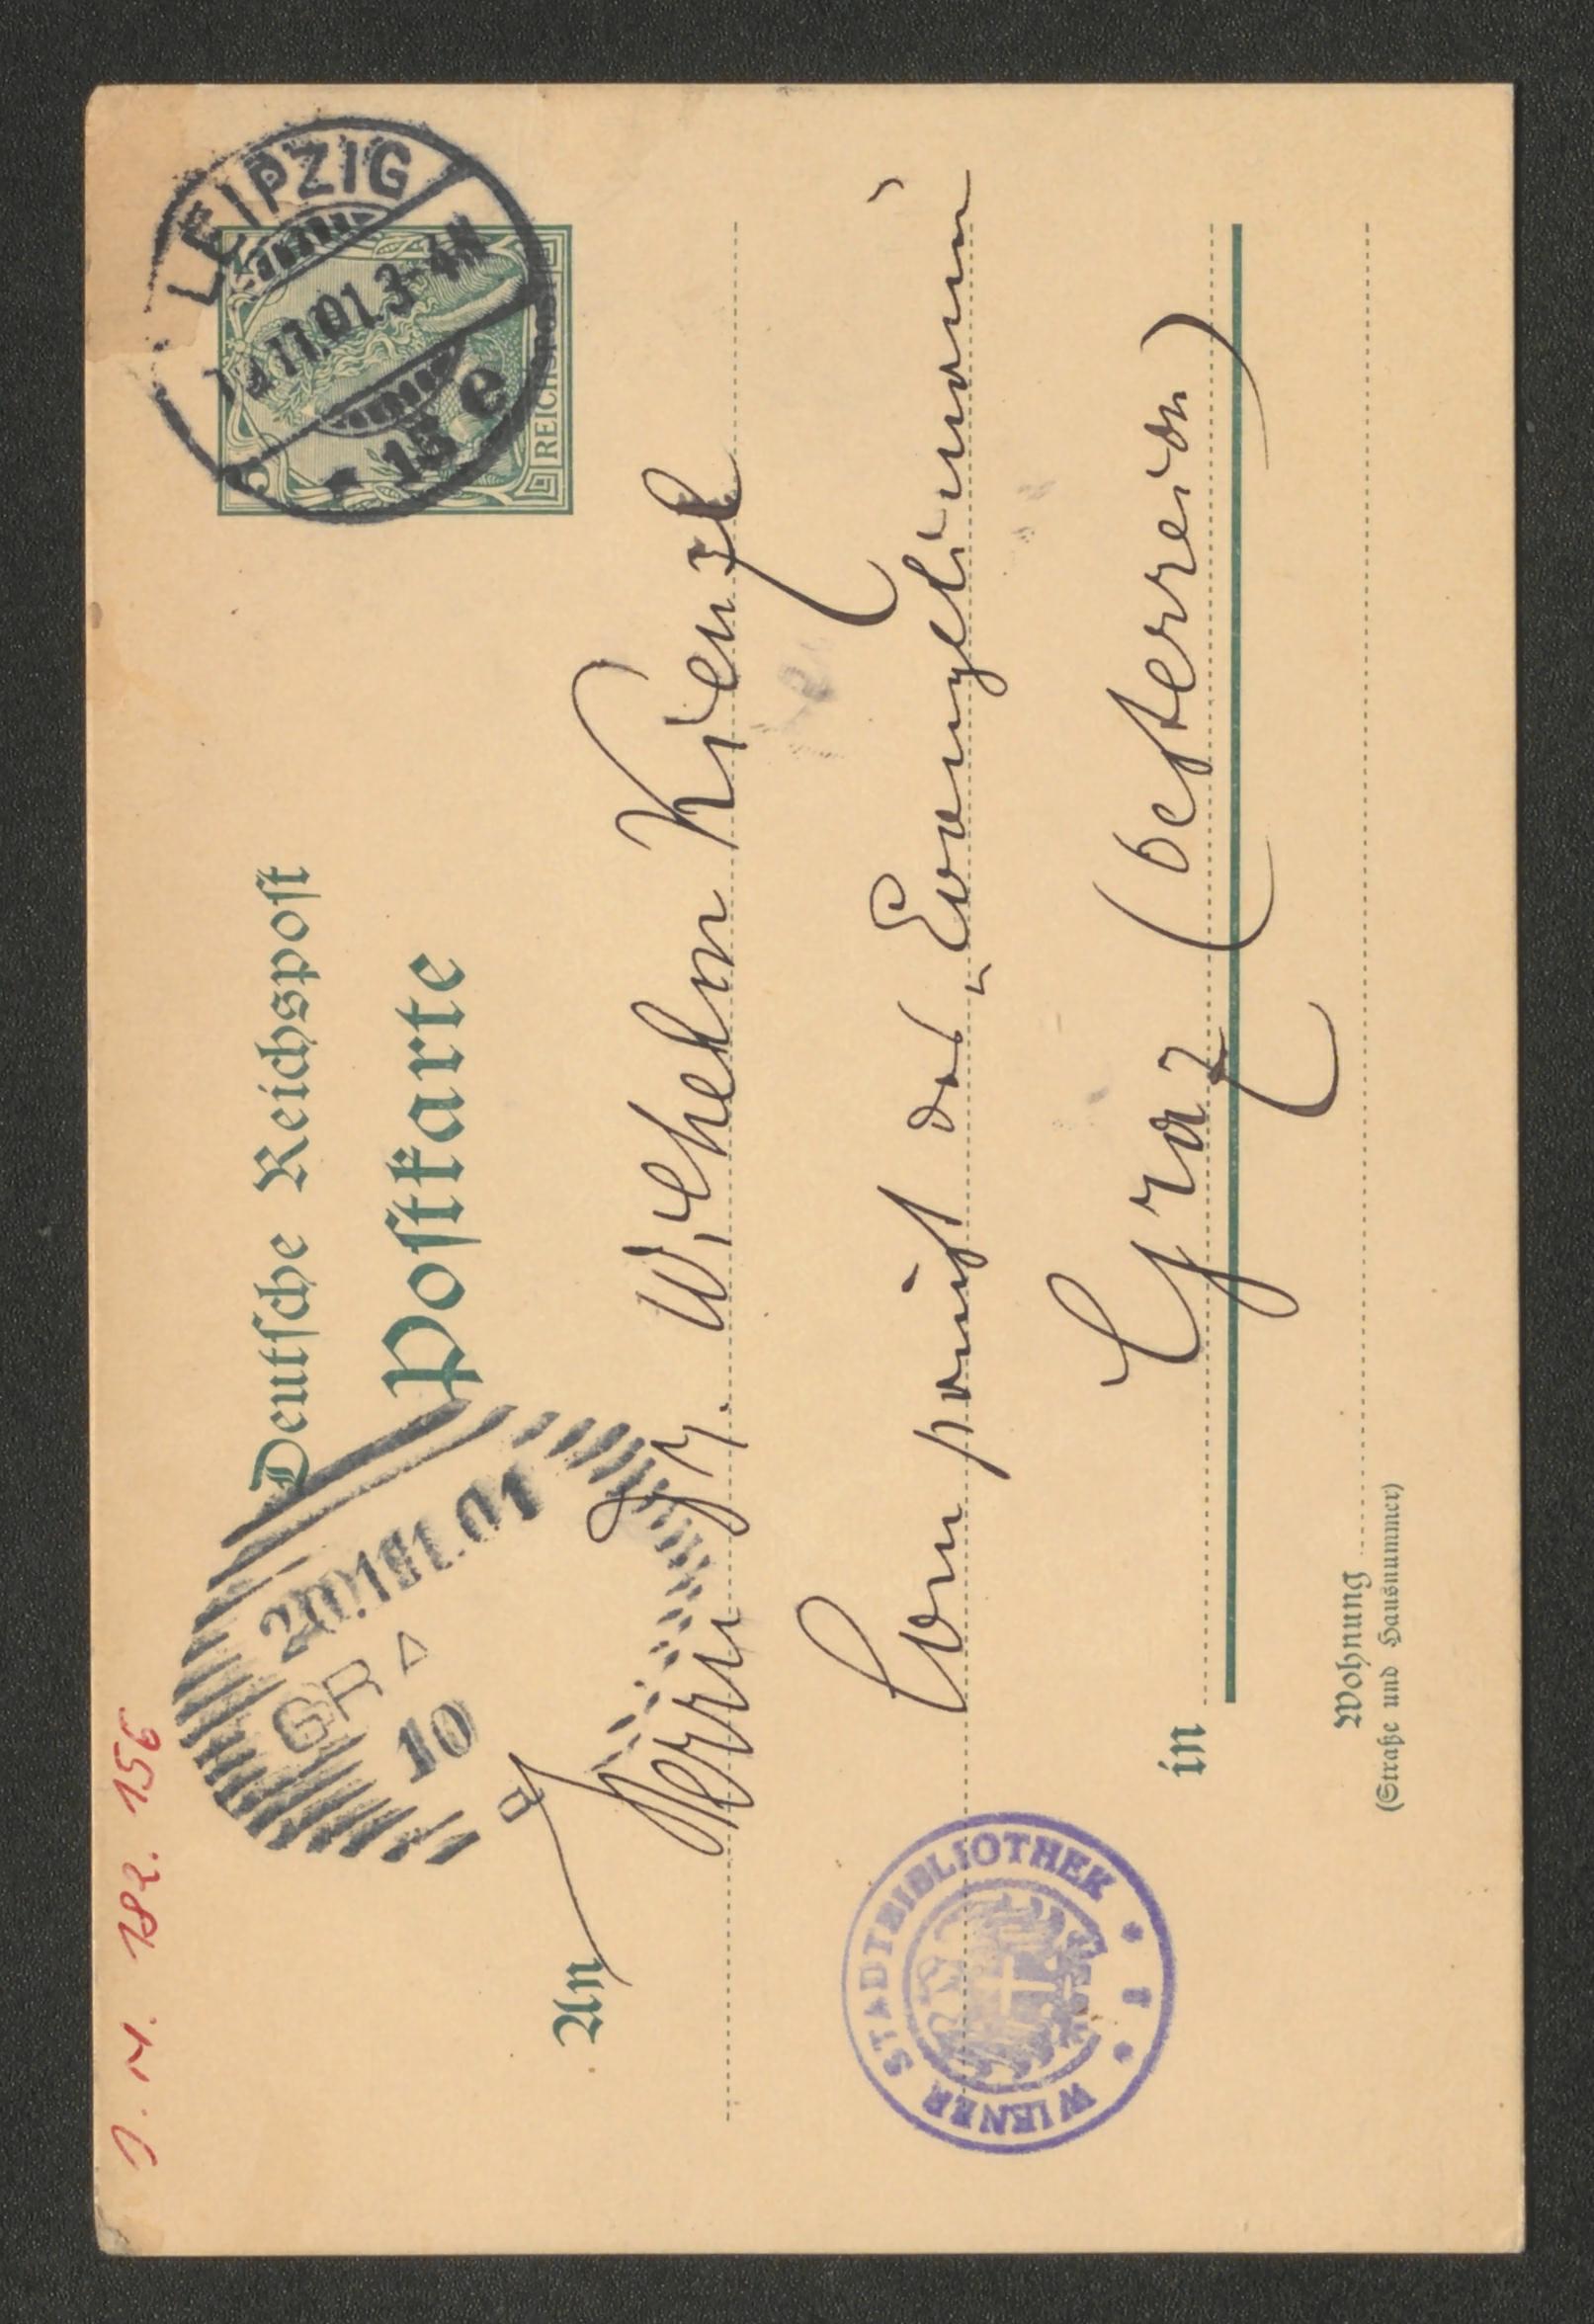 J. N. 182. 156
Deutsche Reichspost
Postkarte
LEIPZIG
11.01. 3-4N
* 13 e
REICHSPOST
20.11.01
GRA
10
An
Herrn Dr. Wilhelm Kienzl
Componist des „Evangelimann“
in Graz (Oesterreich)
Wohnung
(Straße und Hausnummer)
WIENER STADTBIBLIOTHEK